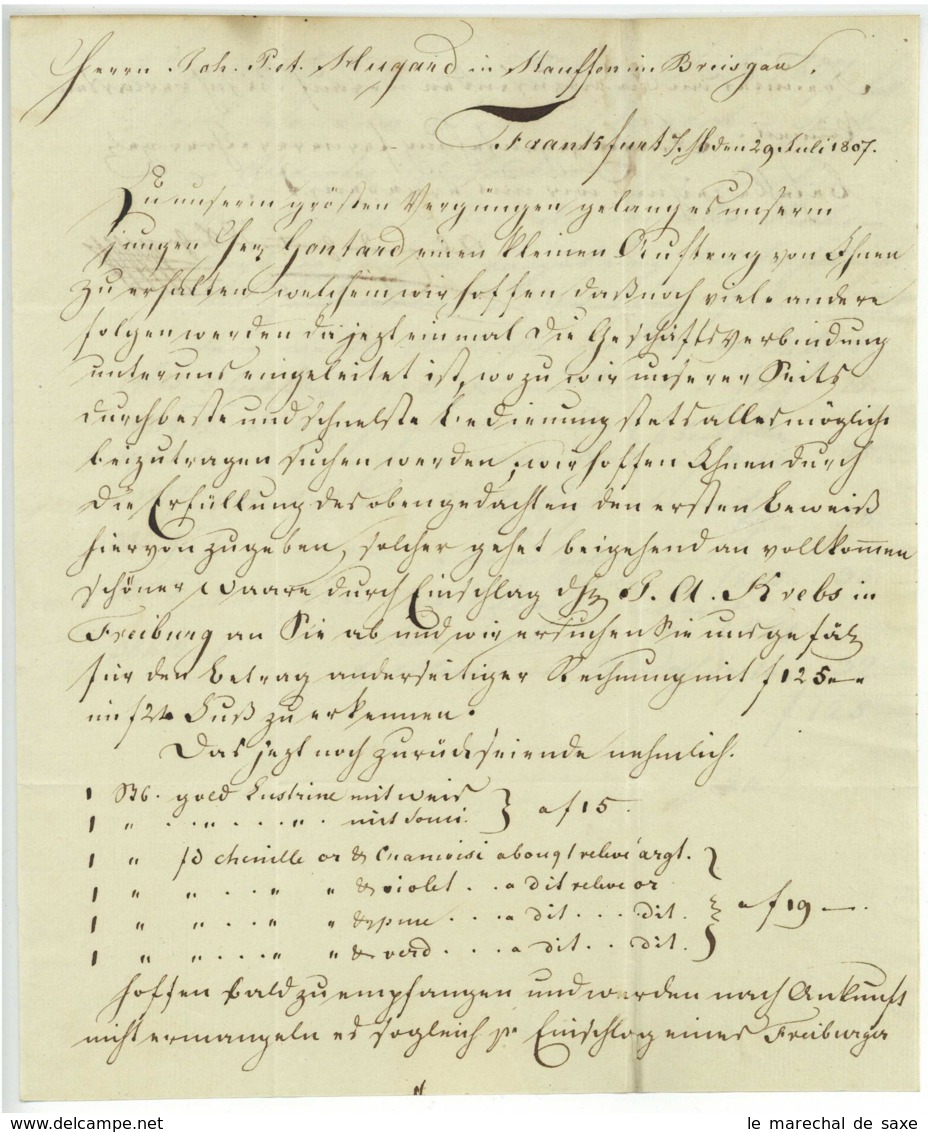 Herrn Joh. Pet. Hugard in Stauffen im Breisgau.
Frankfurt den 29 Juli 1807.
Zu unserm grösten Vergnügen gelang es unserm
jungen Hen Gontard einen kleinen Auftrag von Ihnen
zu erhalten welchem wir hoffen daß noch viele andere
folgen werden da jezt einmal die Geschäftsverbindung
unter uns eingeleitet ist, wozu wir unserer Seits
durch beste und schnelste Bedienung stets alles mögliche
beizutragen suchen werden, wir hoffen Ihnen durch
die Erfüllung des obengedachten den ersten Beweiß
hiervon zu geben, solcher gehet beigehend an vollkom̄en
schöner Waare durch Einschlag A. Krebs in
Freiburg an Sie ab und wir ersuchen Sie uns gefäl
für den Betrag anderseitiger Rechnung mit f 125.—
im f 24 Fuß zu erkennen.
Das jezt noch zurück seiende nehmlich.
1 Stb. gold Lustrine mit weis
1 " . " . . " . mit } a f 15.
1 " fd chenille or & Cramoisi a bouqt relevé argt.
1 " " . . " " & violet . . a dit relevé or
1 " " . . . " " & . . . a dit . . . dit. } a f 19 —.
1 " " . . . " " & verd . . . a dit . . dit.
hoffen bald zu empfangen und werden nach Ankunft
nicht ermangeln es sogleich pr Einschlag eines Freiburger
le marechal de saxe
www.delcampe.net